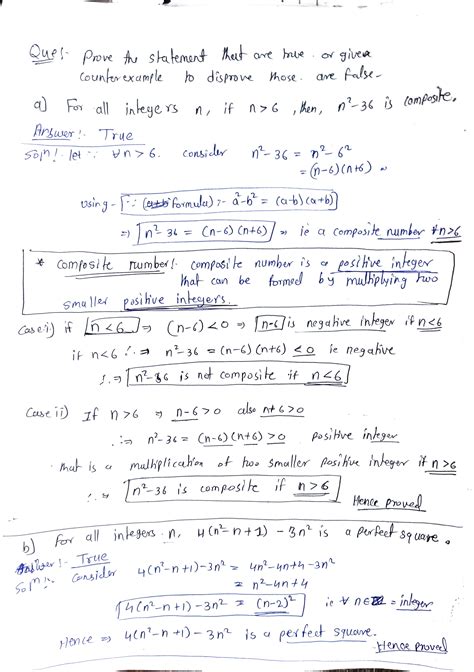 Que:- Prove the statement that are true or givea
counterexample to disprove those are false-
a) For all integers n, if n>6, then, n²-36 is composite.
Answer:- True
Solⁿ:- let ∵ ∀n>6. consider n²-36 = n²-6²
= (n-6)(n+6)
using - [∵ formula) :- a²-b² = (a-b)(a+b)]
⇒ n²-36 = (n-6)(n+6) ie a composite number ∀n>6
* composite number:- composite number is a positive integer
that can be formed by multiplying two
smaller positive integers.
Case i) if n<6 ⇒ (n-6)<0 ⇒ n-6 is negative integer if n<6
if n<6 ∴ ⇒ n²-36 = (n-6)(n+6) <0 ie negative
∴ ⇒ n²-36 is not composite if n<6
Case ii) If n>6 ⇒ n-6>0 also n+6>0
∴ ⇒ n²-36 = (n-6)(n+6)>0 positive integer
that is a multiplication of two smaller positive integer if n>6
∴ ⇒ n²-36 is composite if n>6
Hence proved
b) For all integers n, 4(n²-n+1) - 3n² is a perfect square.
Answer:- True
Solⁿ:- Consider 4(n²-n+1)-3n² = 4n²-4n+4-3n²
= n²-4n+4
4(n²-n+1)-3n² = (n-2)² ie ∀ n∈ = integer
Hence ⇒ 4(n²-n+1)-3n² is a perfect square.
Hence proved